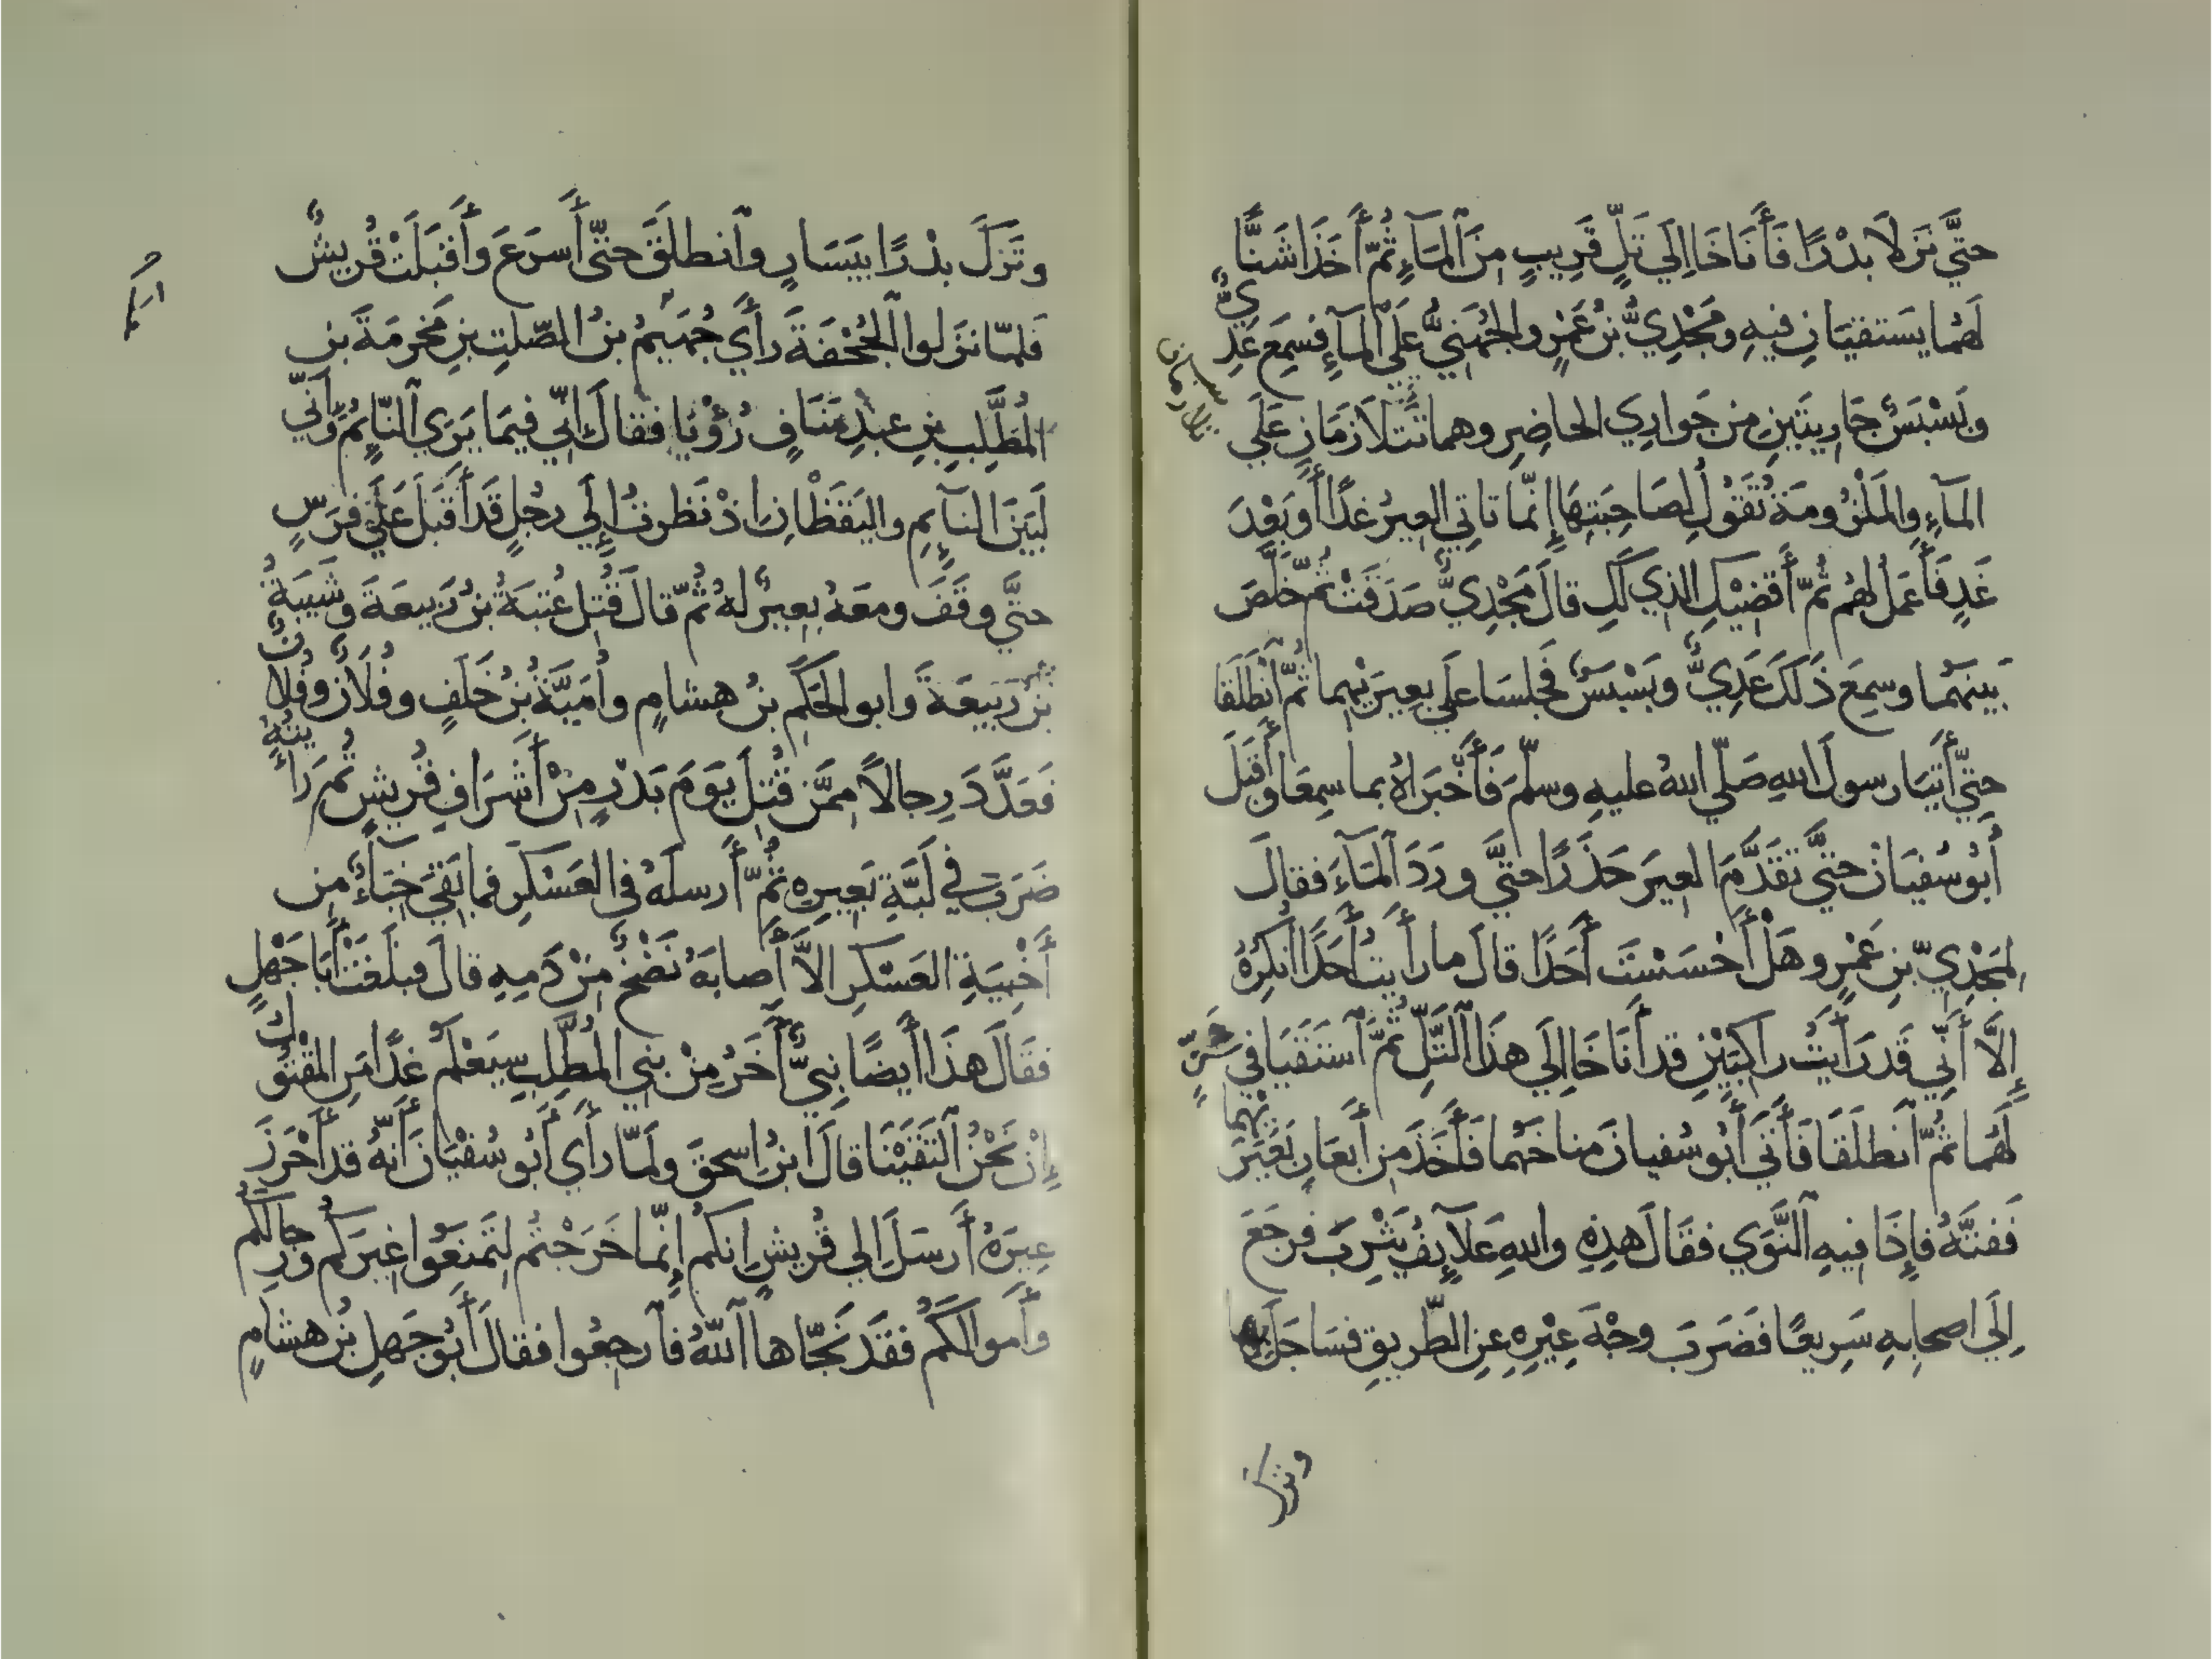 حتَّي نَزَلَا بدْرًا فَأَنَاخَا اِلَي تَلٍّ قَرِيبٍ مِنَ ٱلمَآءِ ثُمّ أَخَذَا شَنًّا
لَهُمَا يَستقيَانِ فيهِ ومَجْدِيُّ بنُ عَمْرٍ والجُهَنِيُّ عَلَي ٱلمآءِ فسَمِعَ عَدِيٌّ
وبَسْبَسٌ جَارِيتَينِ مِن جَوارِي الحاضِرِ وهما تَتلَازمَانِ عَلَي
المَآءِ والمَلْزُومَةُ تَقُولُ لِصَاحِبَتِهَا إنّما تاتِي العِيرُ غدًا أَو بَعْدَ
غَدٍ فَأَعمَلُ لَهُم ثُمّ أَقضِيْكِ الذِي لَكِ قالَ مَجْدِيٌّ صَدَقَتْ ثمّ خَلَّصَ
بَينهُمَا وسمِعَ ذَلكَ عَدِيٌّ وبَسْبَسٌ فَجلسَا علَي بعِيرَيْهِما ثُمّ ٱنْطَلَقَا
حتَّي أَتيَا رسولَ اللهِ صَلّي اللهُ عليهِ وسلّمَ فَأَخْبَرَاهُ بما سمِعَا وأَقبَلَ
أَبُو سُفيَانَ حتَّي تقَدَّمَ العِيرَ حَذَرًا حتَّي ورَدَ ٱلمَآءَ فقالَ
لِمَجْدِيّ بنِ عَمْرٍو هَلْ أَحْسَسْتَ أَحَدًا قالَ ما رأَيتُ أَحَدًا أُنكِرُهُ
إِلَّا أَنِّي قَد رَأَيتُ راكِبَيْنِ قد أَنَاخَا اِلَي هذَا ٱلتَّلِّ ثمَّ ٱستَقَيَا في شَنٍّ
لَهُما ثمّ ٱنطلَقَا فَأَتَي أَبُو سُفيانَ مناخَهُما فَأَخَذَ مِن أَبعَارِ بَعِيرَيْهِما
فَفتَّهُ فإِذَا فيهِ ٱلنَّوَي فقَالَ هذِهِ واللهِ عَلَآئِفُ يَثْرِبَ فرجَعَ
اِلَي اصحابِهِ سَرِيعًا فضَرَبَ وجْهَ عِيْرِهِ عنِ الطّريقِ فسَاحَلَ بِها
وتركَ
وتَرَكَ بدْرًا بيَسَارٍ وٱنطلَقَ حتّي أَسرَعَ وأَقبَلَتْ قُريشٌ
فَلمّا نزَلوا ٱلجُحْفَةَ رأَي جُهَيمُ بنُ الصّلتِ بنِ مَخرمَةَ بنِ
المُطَّلِبِ بنِ عبدِ مَنَافٍ رُؤْيَا فقالَ اِنِّي فيمَا يَرَي ٱلنّايِمُ وأَنّي
لَبَيْنَ النآيِمِ واليَقَظْانِ اذْ نَظرتُ إِلَي رجُلٍ قَد أَقبَلَ عَلَي فرَسٍ
حتَّي وقَفَ ومعَهُ بعِيرٌ لهُ ثُمّ قالَ قُتِلَ عُتبَةُ بنُ رَبِيعَةَ وشَيبَةُ
بْنُ رَبيعَةَ وابو الحَكَمِ بنُ هشامٍ وأُمَيَّةُ بْنُ خَلَفٍ وفُلَانٌ وفُلانٌ
فَعَدَّدَ رِجالًا مِمَّن قُتِلَ يَومَ بَدْرٍ مِنْ أَشرَافِ قُريشٍ ثُم رَأيتُهُ
ضَرَبَ في لَبَّةِ بَعِيرِهِ ثُمّ أَرسلَهُ في العَسْكَرِ فما بَقيَ خِبَآءٌ مِن
أَخْبِيَةِ العَسْكَرِ الاَّ أَصابَهُ نَضْحٌ مِنْ دَمِهِ قالَ فبلَغَتْ أَبَا جَهْلٍ
فقَالَ هذَا أَيضًا نبِيٌّ أَخَرُ مِنْ بنِي المُطَّلِبِ سيَعْلَمُ غدًا مَنِ المَقْتولُ
إِنْ نَحْنُ ٱلتقَيْنَا قالَ ابنُ اسحقَ ولَمّا رأَي أَبُو سُفْيَانَ أَنّهُ قد أَحْرَزَ
عِيرَهُ أَرسَلَ اِلي قُريشٍ اِنكم إِنّما خَرَجْتُم لِتَمنَعُوا عِيرَكم ورِجالَكُم
وأَموالَكُم فقَد نَجّاها ٱللهُ فٱرجِعُوا فقالَ أَبُو جَهلِ بْنُ هشامٍ